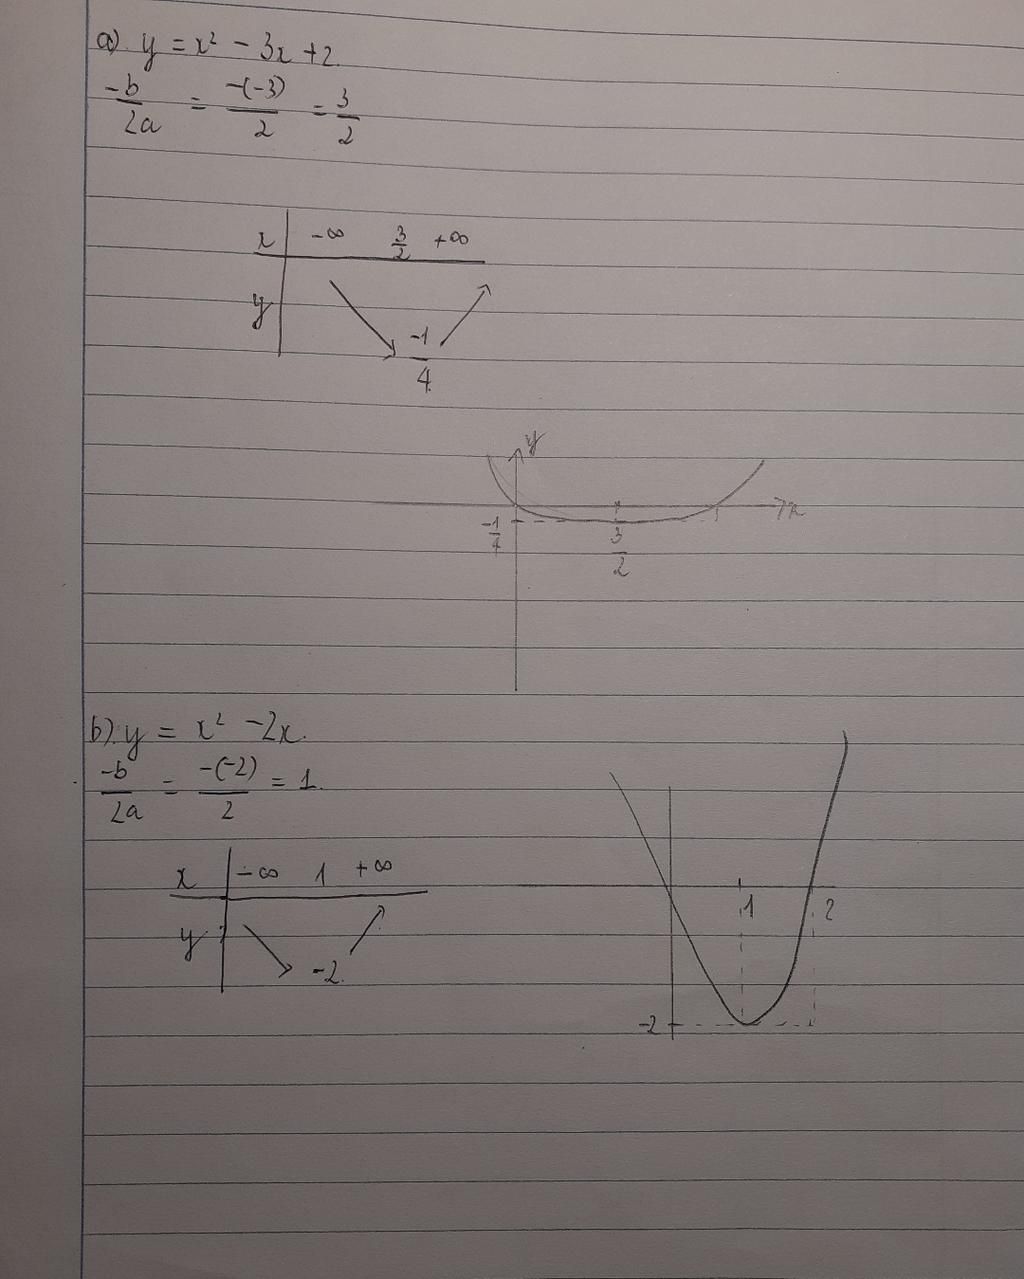 a) y = x² - 3x + 2.
-b/2a = -(-3)/2 = 3/2
x -∞ 3/2 +∞
y
-1/4
y
x
-1/4
3/2
b) y = x² - 2x.
-b/2a = -(-2)/2 = 1.
x -∞ 1 +∞
y
-2
1 2
-2